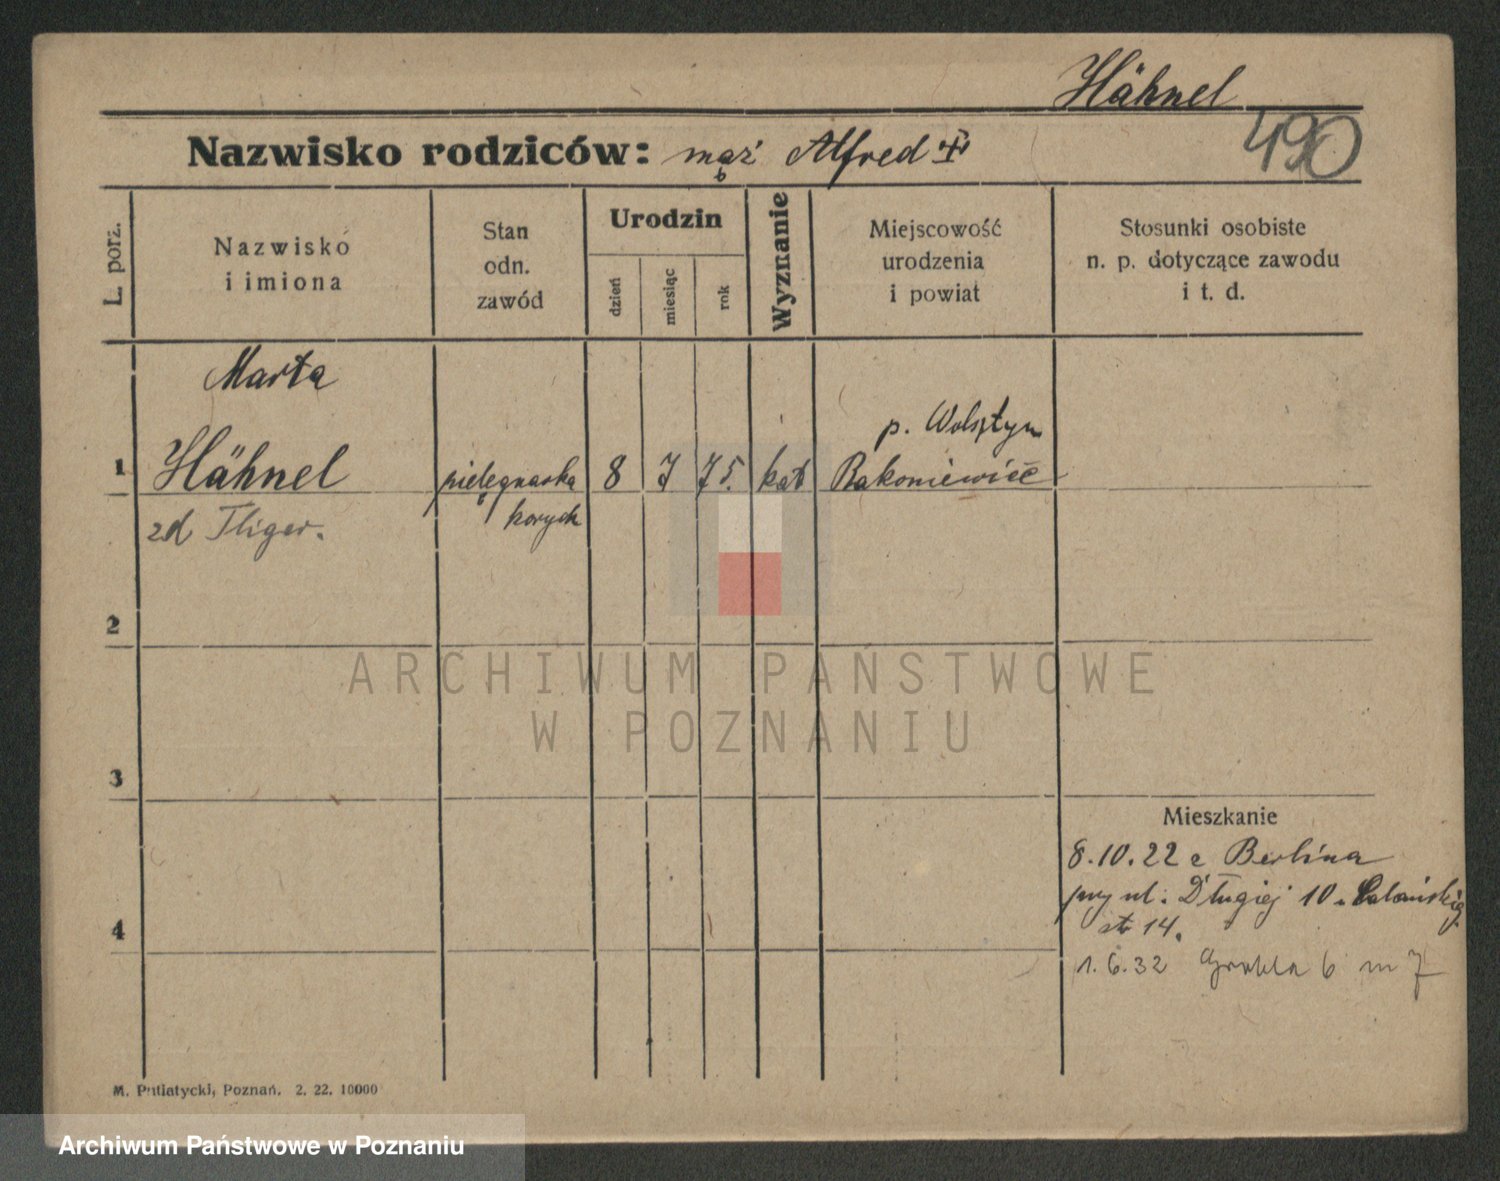 Hähnel
490
Nazwisko rodziców: mąż Alfred
L. porz.
Nazwisko
i imiona
Stan
odn.
zawód
Urodzin
dzień
miesiąc
rok
Wyznanie
Miejscowość
urodzenia
i powiat
Stosunki osobiste
n. p. dotyczące zawodu
i t. d.
Marta
p. Wolsztyn
1 Hähnel pielęgnarka 8 7 75. kat Rakoniewice
zd chorych
2
3
Mieszkanie
8.10.22 z Berlina
przy ul. Długiej 10.
4
14.
1.6.32 Grobla 6 m 7
M. Putiatycki, Poznań. 2. 22. 10000
ARCHIWUM PAŃSTWOWE
W POZNANIU
Archiwum Państwowe w Poznaniu